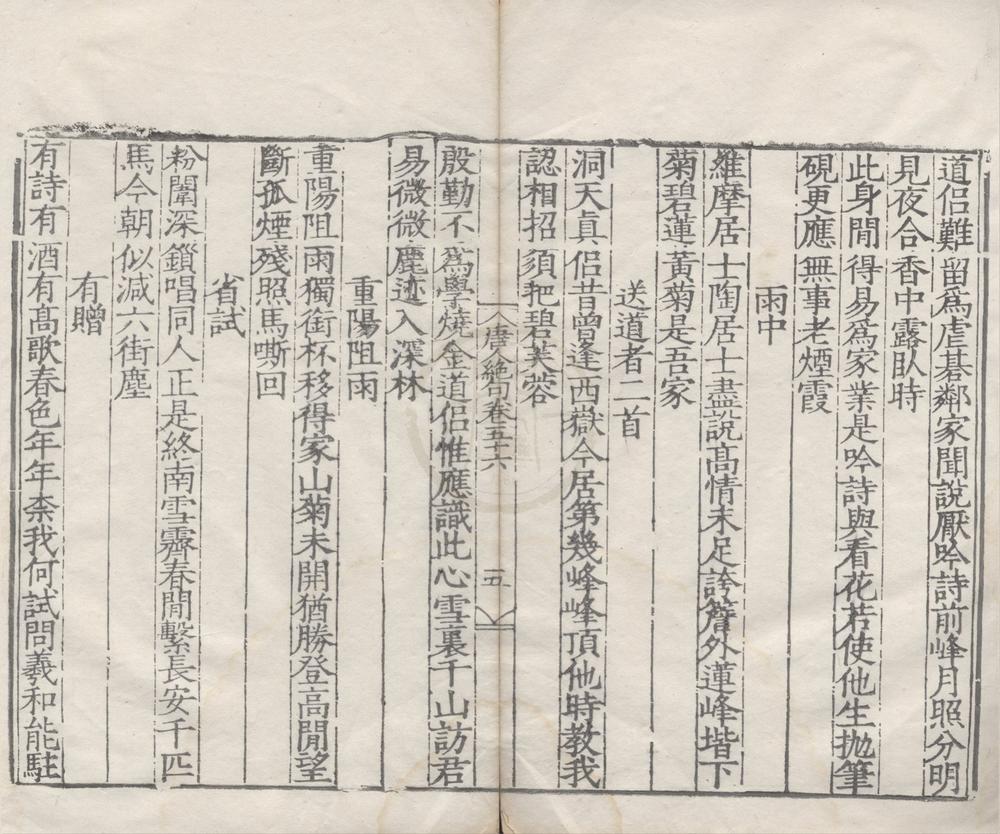 道侶難留爲虐碁鄰家聞說厭吟詩前峰月照分明
見夜合香中露臥時
此身閒得易爲家業是吟詩與看花若使他生抛筆
硯更應無事老煙霞
雨中
維摩居士陶居士盡說高情未足誇簷外蓮峰堦下
菊碧蓮黃菊是吾家
送道者二首
洞天眞侶昔曾逢西嶽今居第幾峰峰頂他時教我
認相招須把碧芙蓉
唐人絶句卷五十六
五
殷勤不爲學燒金道侶惟應識此心雪裏千山訪君
易微微塵迹入深林
重陽阻雨
重陽阻雨獨銜杯移得家山菊未開猶勝登高閒望
斷孤煙殘照馬嘶回
省試
粉闈深鎖唱同人正是終南雪霽春閒繫長安千匹
馬今朝似減六街塵
有贈
有詩有酒有高歌春色年年柰我何試問羲和能駐